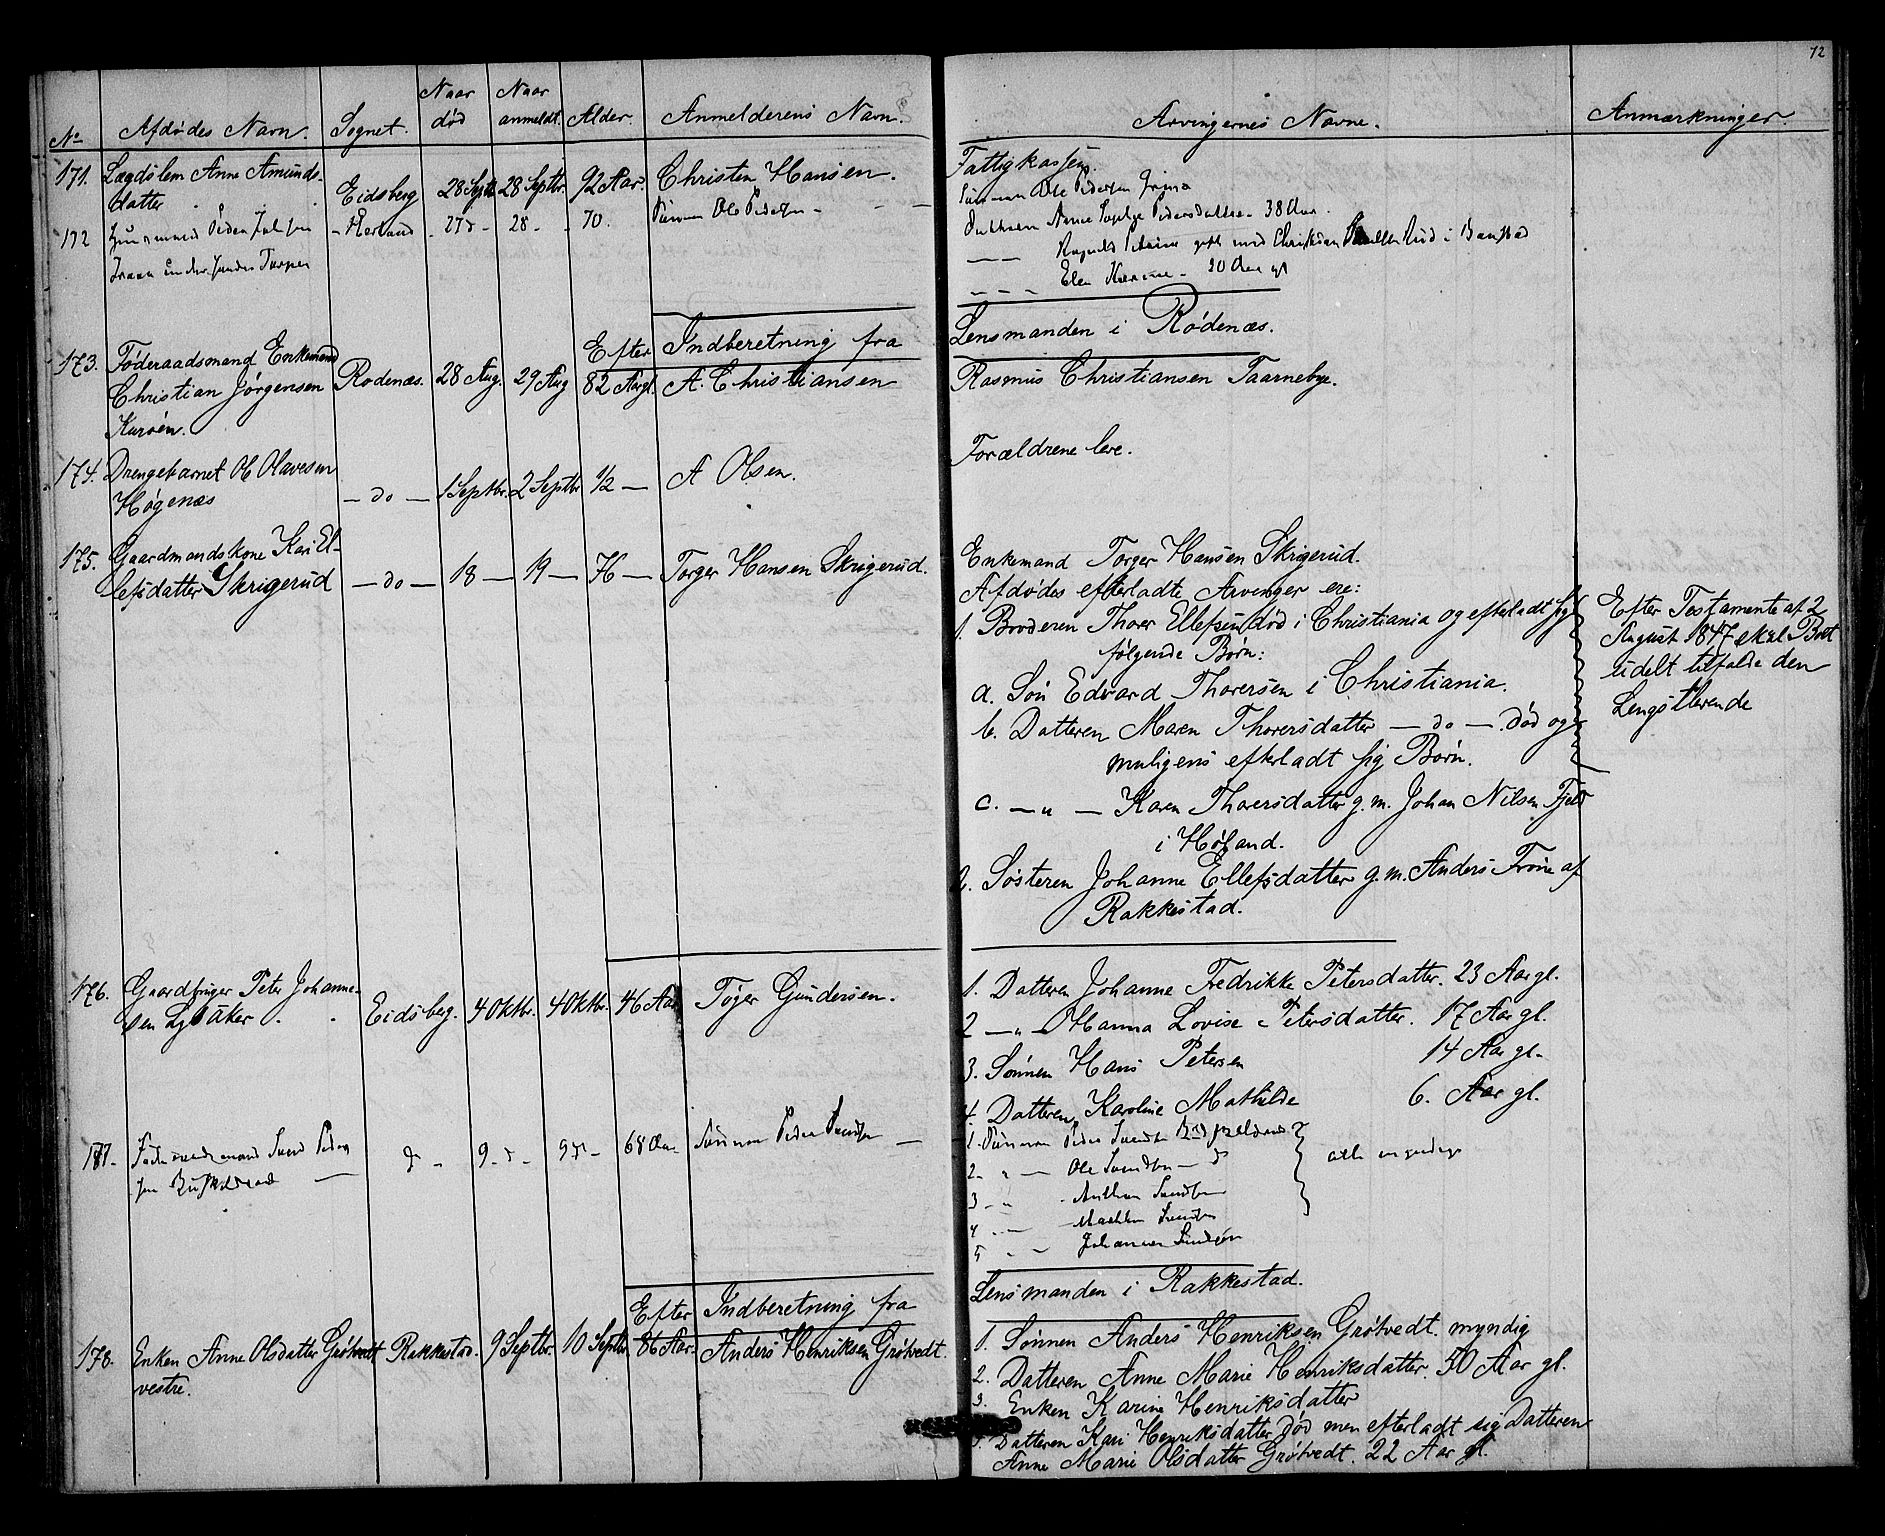 72
No
Afdødes Navn.
Sognet.
Naar død
Naar anmeldt.
Alder.
Anmelderens Navn.
Arvingernes Navne.
Anmærkninger.
171. Lægdslem Anne Amunds-
datter
Eidsberg 28 Septbr. 28 Septbr. 92 Aar. Christen Hansen.
Fattigkassen.
172 Peder
Hærland 27 d 28 70. Sønnen Ole Pedersen
Sønnen Ole Pedersen
Datteren Anne Pedersdatter 38 Aar.
gift med Christian i
Elen 20 Aar gl
Efter Indberetning fra Lensmanden i Rødenæs.
173. Føderaadsmand Enkemand
Christian Jørgensen
Kurøen.
Rødenæs. 28 Aug. 29 Aug 82 Aar gl. A. Christiansen
Rasmus Christiansen Taarnebye.
174. Drengebarnet Ole Olavesen
Høgenæs
— do — 1 Septbr. 2 Septbr ½ — A Olsen.
Forældrene leve.
175. Gaardmandskone Kari El-
lefsdatter Skrigerud
— do — 18 — 19 — 76 — Torger Hansen Skrigerud.
Enkemand Torger Hansen Skrigerud.
Afdødes efterladte Arvinger ere:
1. Broderen Thorer Ellefsen død i Christiania og efterladt sig
følgende Børn:
a. Søn Edvard Thorersen i Christiania.
b. Datteren Maren Thorersdatter — do — død og
muligens efterladt sig Børn.
c. — " — Karen Thorersdatter g.m. Johan Nilsen Fjeld
i Høland.
2. Søsteren Johanne Ellefsdatter g.m. Anders Frøne af
Rakkestad.
Efter Testamente af 2
August 1847 skal Boet
udelt tilfalde den
Lengstlevende
176. Gaardbruger Peter Johanne-
sen Lysaker
Eidsberg. 4 Oktbr. 4 Oktbr. 46 Aar Tøger Gundersen.
1. Datteren Johanne Fredrikke Petersdatter. 23 Aar gl.
2 — " — Hanna Lovise Petersdatter. 17 Aar gl.
3. Sønnen Hans Petersen 14 Aar gl.
4. Datteren Karoline Mathilde 6. Aar gl.
177. Svend Peder
sen
d 9 d 9 d 68 Aar Sønnen Peder Svendsen
1. Sønnen Peder Svendsen
2 " — Ole Svendsen — d
3 — " Anthon Svendsen
4 — Svendsen
5 " — Johannes Svendsen
alle myndige
Efter Indberetning fra Lensmanden i Rakkestad.
178. Enken Anne Olsdatter Grøtvedt
vestre.
Rakkestad. 9 Septbr. 10 Septbr 86 Aar. Anders Henriksen Grøtvedt.
1. Sønnen Anders Henriksen Grøtvedt. myndig
2. Datteren Anne Marie Henriksdatter. 50 Aar gl.
3. Enken Karine Henriksdatter
Datteren Kari Henriksdatter død men efterladt sig Datteren
Anne Marie Olsdatter Grøtvedt. 22 Aar gl.